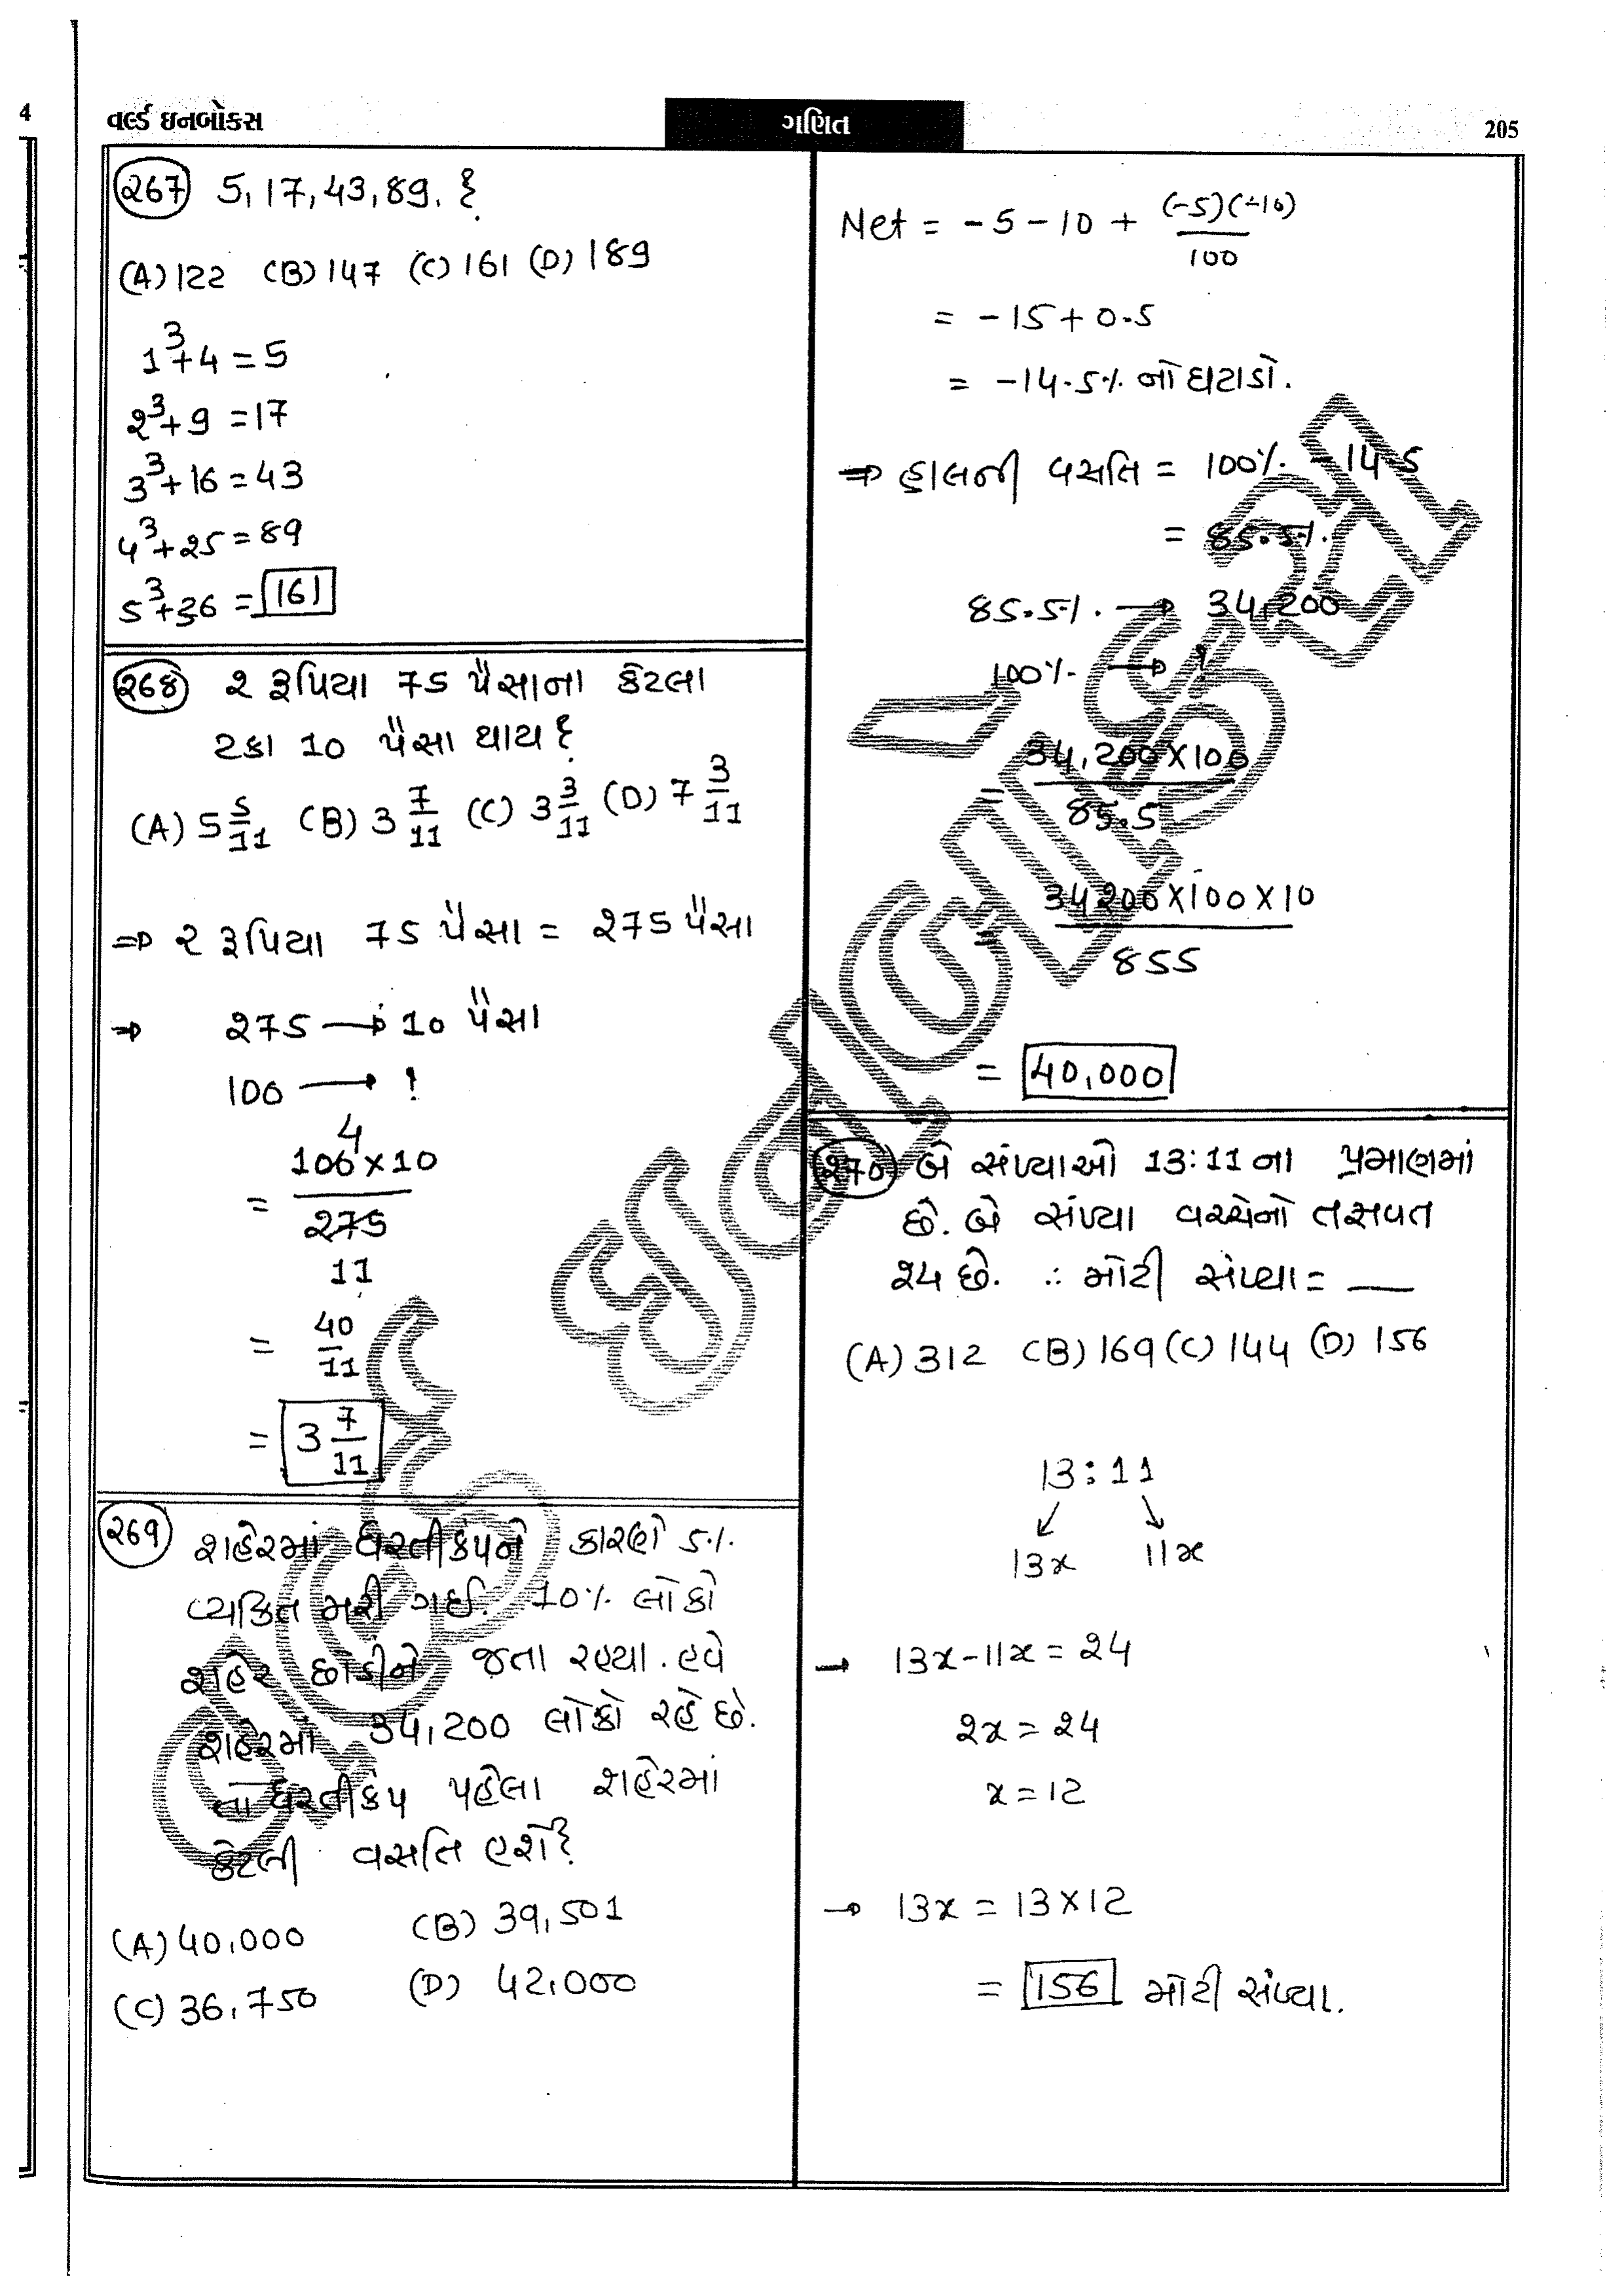 4
વર્લ્ડ ઇનબોક્સ
ગણિત
205
(267) 5, 17, 43, 89, ?
(A) 122 (B) 147 (C) 161 (D) 189
1³+4 = 5
2³+9 = 17
3³+16 = 43
4³+25 = 89
5³+36 = 161
(268) 2 રૂપિયા 75 પૈસાના કેટલા
ટકા 10 પૈસા થાય?
(A) 5 5/11 (B) 3 7/11 (C) 3 3/11 (D) 7 3/11
⇒ 2 રૂપિયા 75 પૈસા = 275 પૈસા
⇒ 275 → 10 પૈસા
100 → ?
4
= 100×10 / 275
11
= 40/11
= 3 7/11
(269) શહેરમાં ધરતીકંપને કારણે 5%
વ્યકિત મરી ગઈ. 10% લોકો
શહેર છોડીને જતા રહ્યા. હવે
શહેરમાં 34,200 લોકો રહે છે.
તો ધરતીકંપ પહેલા શહેરમાં
કેટલી વસતિ હશે?
(A) 40,000 (B) 39,501
(C) 36,750 (D) 42,000
Net = -5-10 + (-5)(-10) / 100
= -15+0.5
= -14.5% નો ઘટાડો.
⇒ હાલની વસતિ = 100% - 14.5
= 85.5%.
85.5% → 34,200
100% → ?
= 34,200×100 / 85.5
= 34200×100×10 / 855
= 40,000
(270) બે સંખ્યાઓ 13:11 ના પ્રમાણમાં
છે. બે સંખ્યા વચ્ચેનો તફાવત
24 છે. ∴ મોટી સંખ્યા = __
(A) 312 (B) 169 (C) 144 (D) 156
13:11
13x 11x
→ 13x-11x = 24
2x = 24
x = 12
→ 13x = 13×12
= 156 મોટી સંખ્યા.